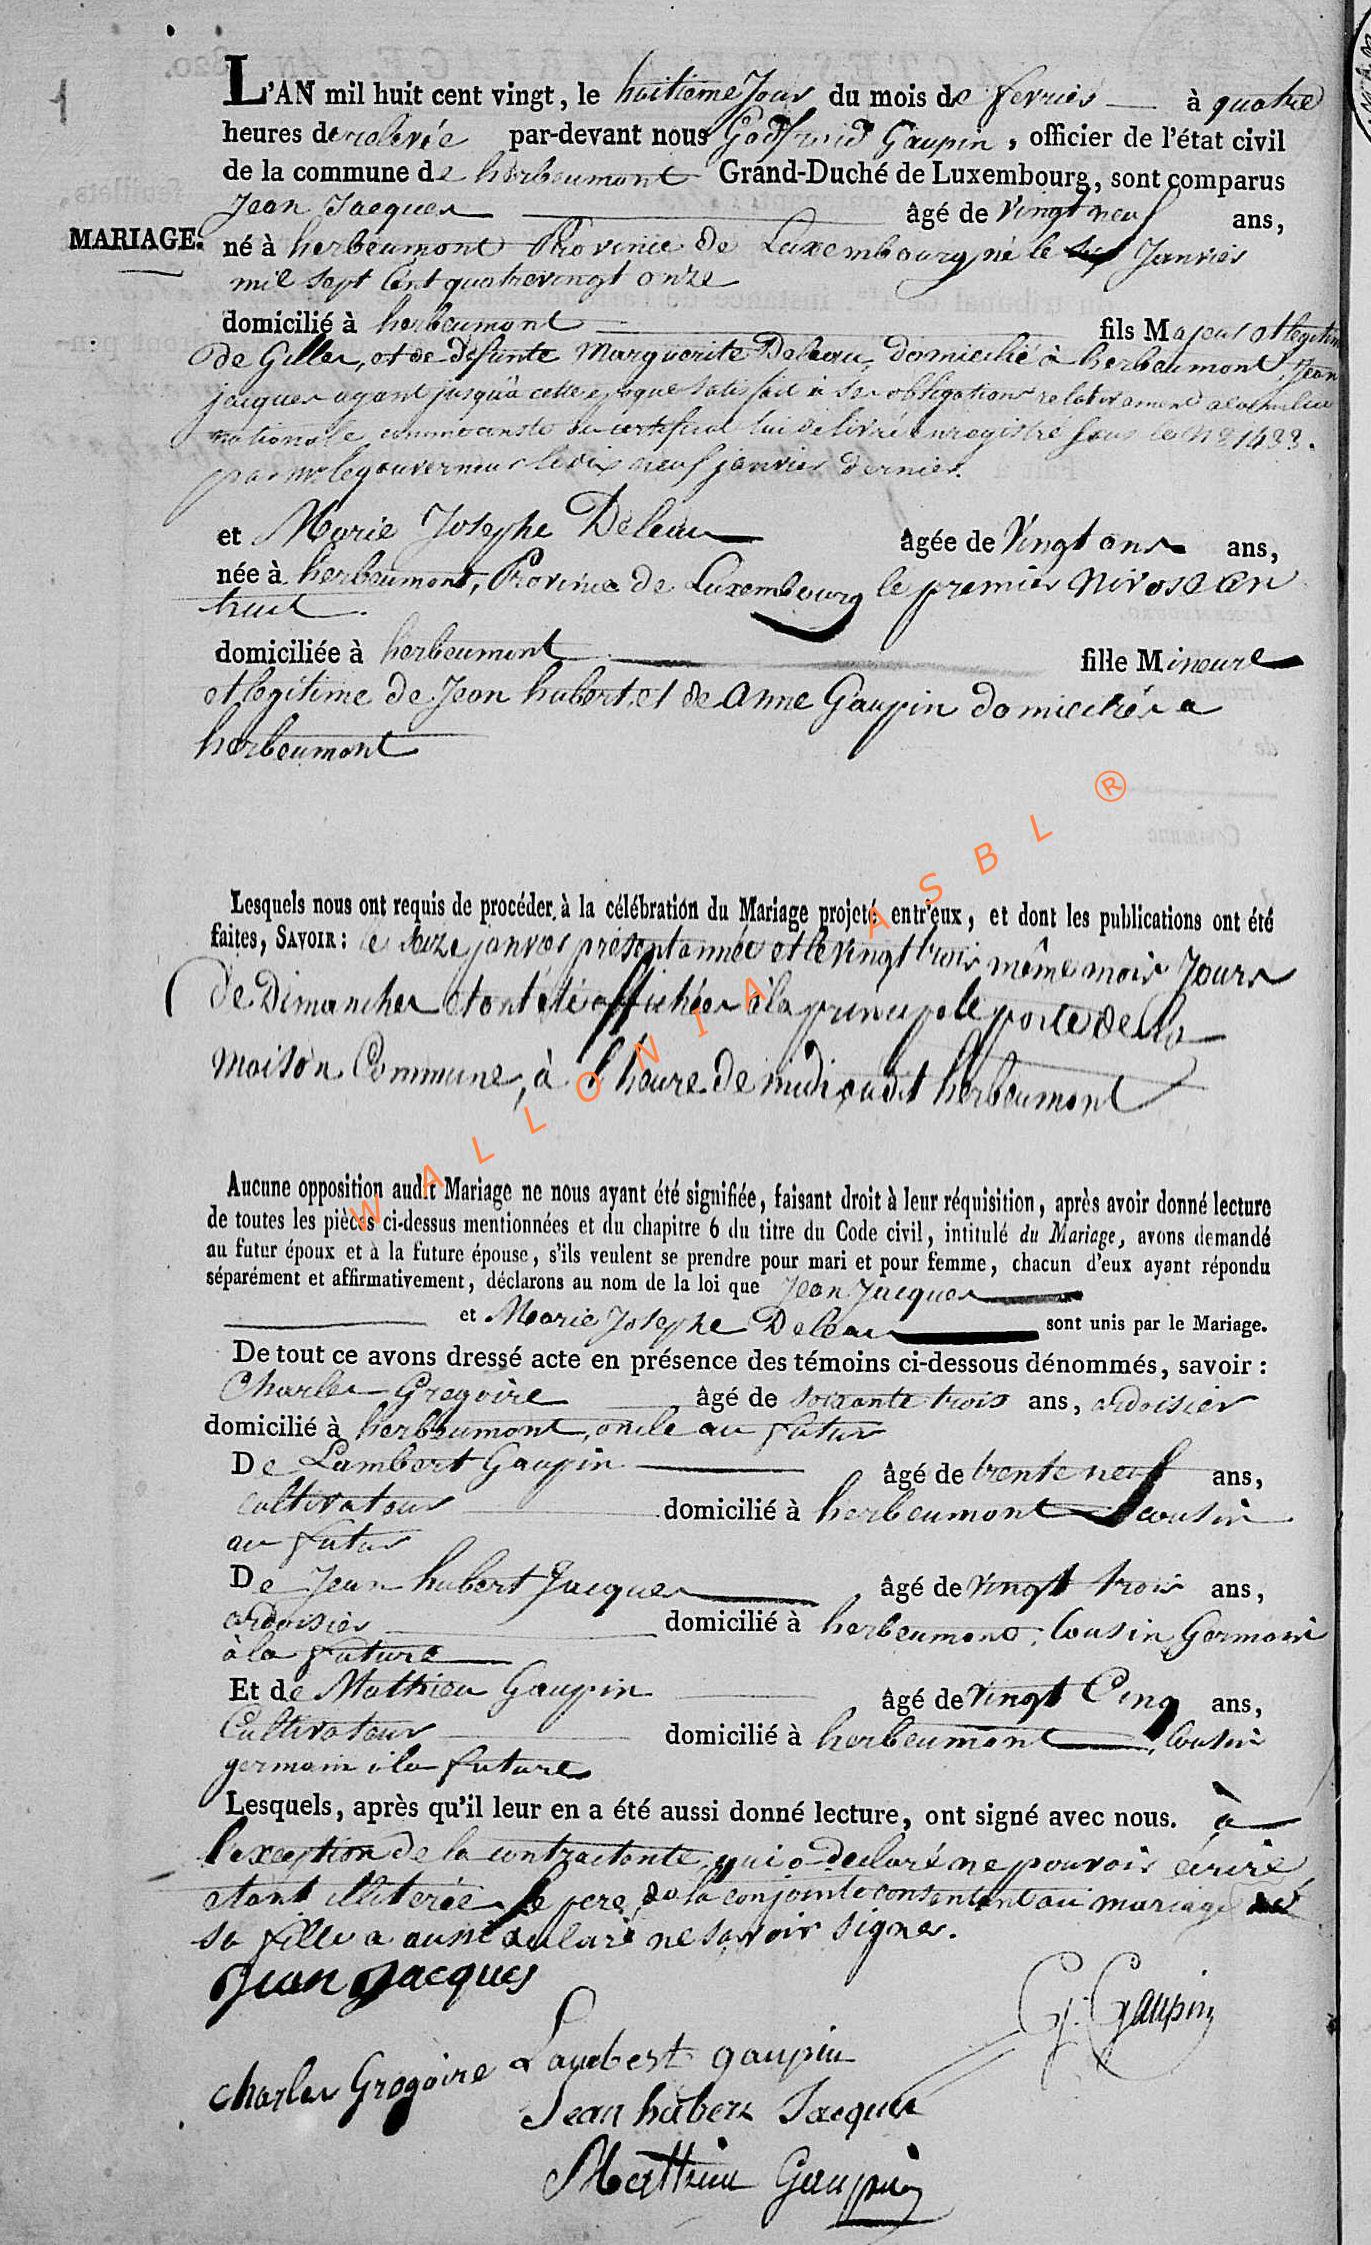 1
L'AN mil huit cent vingt, le huitieme Jour du mois de fevrier à quatre
heures de relevée par-devant nous Godfroid Gaupin, officier de l'état civil
de la commune de herbeumont Grand-Duché de Luxembourg, sont comparus
Jean Jacques âgé de vingt neuf ans,
MARIAGE.
né à herbeumont Province de Luxembourg né le six Janvier
mil sept Cent quatrevingt onze
domicilié à herbeumont fils Majeur et legitime
de Gilles, et de defunte Marguerite Deleau, domicilié à herbeumont, Jean
jacques ayant jusqu'à cette epoque satisfait à ses obligations relativement a la milice
nationale comme conste du certificat lui delivré enregistré sous le n° 1433.
par mr le gouverneur le dix neuf janvier dernier.
et Marie Josephe Deleau âgée de Vingt ans ans,
née à herbeumont, Province de Luxembourg le premier Nivose an
huit.
domiciliée à herbeumont fille Mineure
et legitime de Jean hubert, et de Anne Gaupin domiciliés a
herbeumont
Lesquels nous ont requis de procéder à la célébration du Mariage projeté entr'eux, et dont les publications ont été
faites, SAVOIR: le seize janvier présent année et le vingt trois même mois Jours
de Dimanches et ont été affichées à la principale porte de la
maison Commune, à l'heure de midi audit herbeumont
WALLONIA ASBL ®
Aucune opposition audit Mariage ne nous ayant été signifiée, faisant droit à leur réquisition, après avoir donné lecture
de toutes les pièces ci-dessus mentionnées et du chapitre 6 du titre du Code civil, intitulé du Mariage, avons demandé
au futur époux et à la future épouse, s'ils veulent se prendre pour mari et pour femme, chacun d'eux ayant répondu
séparément et affirmativement, déclarons au nom de la loi que Jean Jacques
et Marie Josephe Deleau sont unis par le Mariage.
De tout ce avons dressé acte en présence des témoins ci-dessous dénommés, savoir:
Charles Gregoire âgé de soixante trois ans, ardoisier
domicilié à herbeumont, oncle au futur
De Lambert Gaupin âgé de trente neuf ans,
cultivateur domicilié à herbeumont cousin
au futur
De Jean hubert Jacques âgé de vingt trois ans,
ardoisier domicilié à herbeumont, Cousin Germain
à la future
Et de Mathieu Gaupin âgé de vingt Cinq ans,
Cultivateur domicilié à herbeumont, Cousin
germain à la future
Lesquels, après qu'il leur en a été aussi donné lecture, ont signé avec nous. à
l'exception de la contractante, qui a declaré ne pouvoir écrire
etant illiterée le pere de la conjointe consentant au mariage de
sa fille a aussi declaré ne savoir signer.
Jean Jacques
G. Gaupin
Lambert gaupin
charles Grogoire
Jean hubert Jacques
Matthieu Gaupin